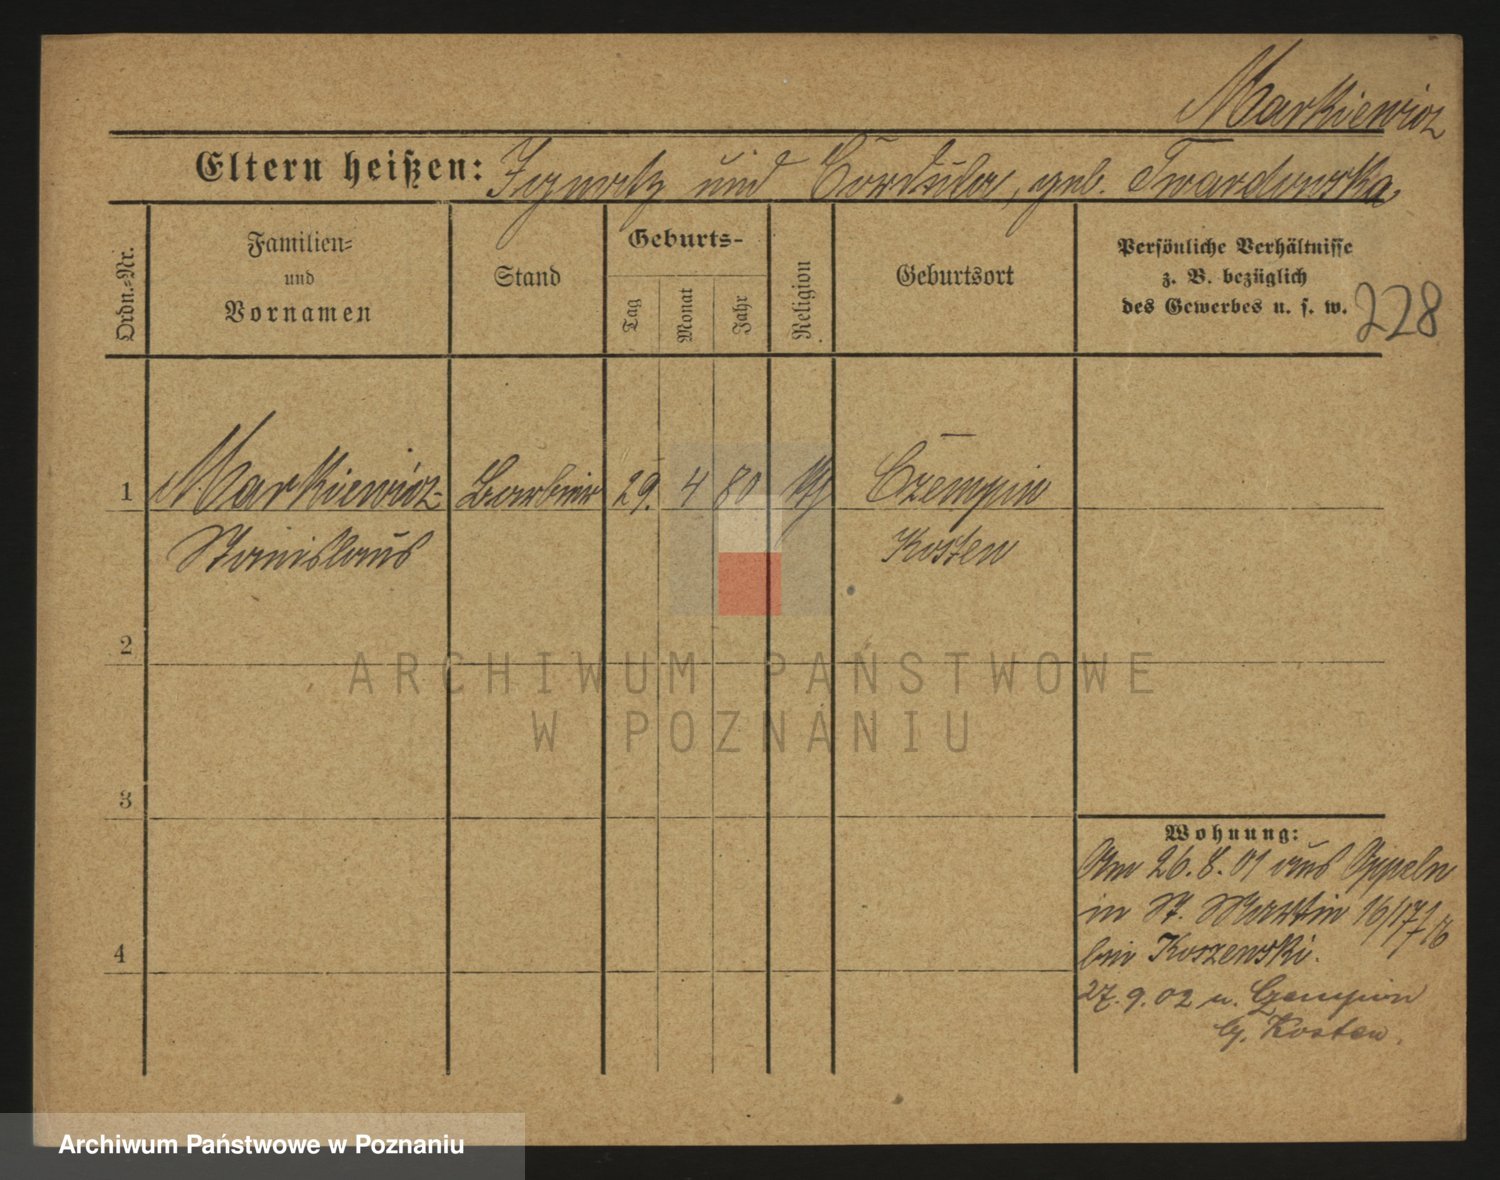 Markiewicz
Eltern heißen: Ignatz und Cordula, geb. Twardowska
Ordn.-Nr.
Familien-
und
Vornamen
Stand
Geburts-
Tag
Monat
Jahr
Religion
Geburtsort
Persönliche Verhältnisse
z. B. bezüglich
des Gewerbes u. s. w.
228
1 Markiewicz Barbier 29. 4 80 Czempin
Stanislaus Kosten
2
ARCHIWUM PAŃSTWOWE
W POZNANIU
3
Wohnung:
Am 26.8.01 aus Oppeln
in St. Martin 16/17/
bei Koszewski.
4
27.9.02 n. Czempin
Kosten.
Archiwum Państwowe w Poznaniu